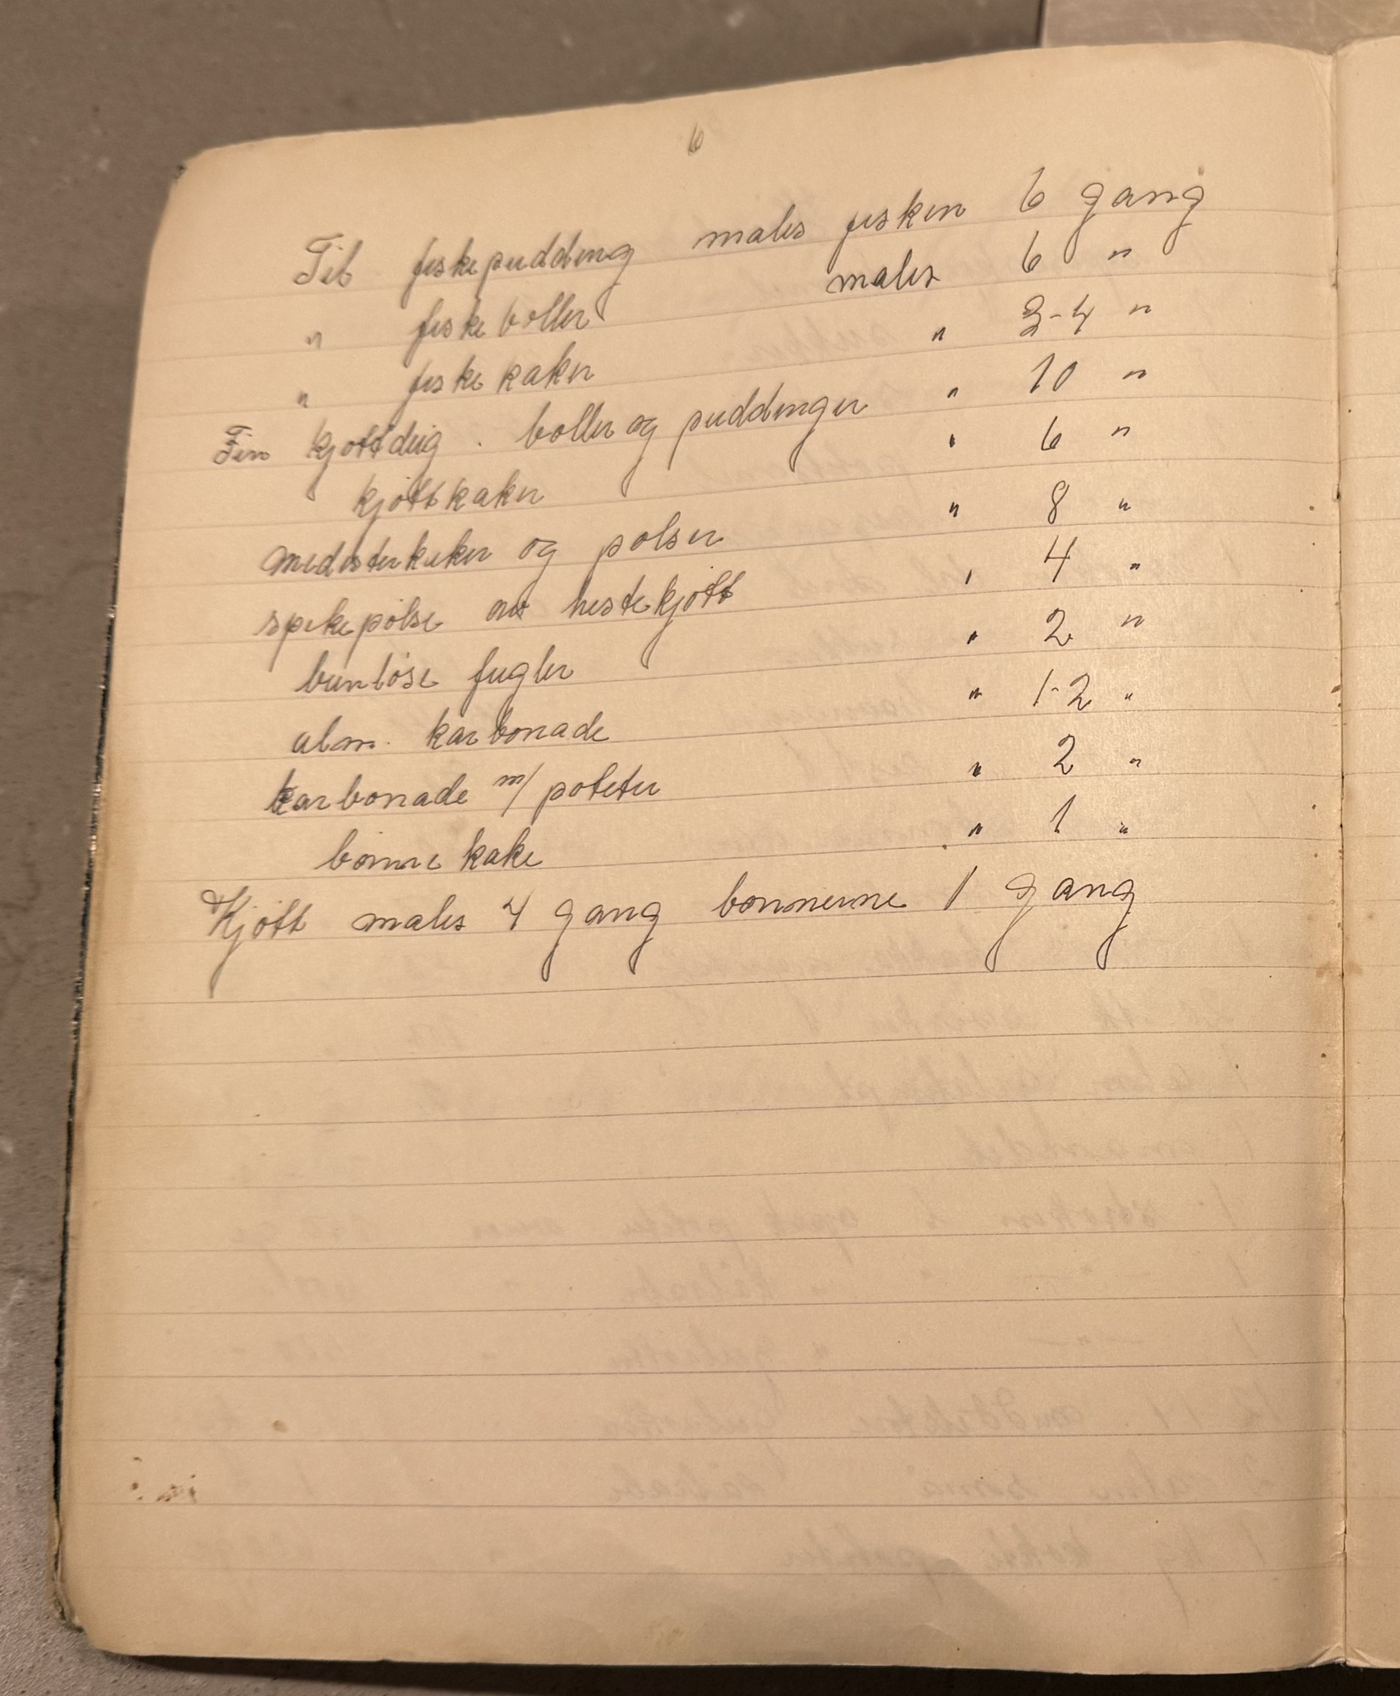 6
Til fiskepudding males fisken 6 gang
" fiskeboller males 6 "
" fiske kaker " 3-4 "
Fin kjøttdeig. boller og puddinger " 10 "
kjøttkaker " 6 "
medisterkaker og pølser " 8 "
spekepølse av hestekjøtt " 4 "
benløse fugler " 2 "
alm. karbonade " 1-2 "
karbonade m/ poteter " 2 "
bønne kake " 1 "
Kjøtt males 4 gang bønnerne 1 gang